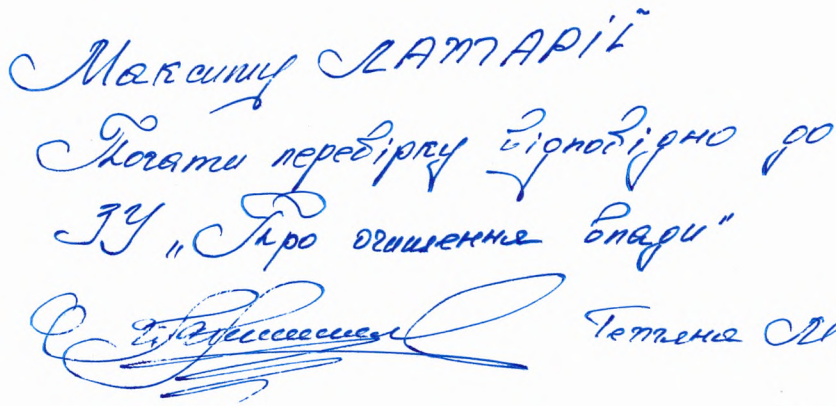 Максиму ЛАТАРІЇ
Почати перевірку відповідно до
ЗУ „Про очищення влади"
Тетяна